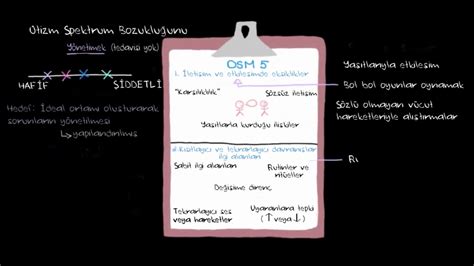 Otizm Spektrum Bozukluğunu
Yönetmek (tedavisi yok)
HAFİF
ŞİDDETLİ
Hedef: İdeal ortamı oluşturarak
sorunların yönetilmesi
yapılandırılmış
DSM 5
1. İletişim ve etkileşimde eksiklikler
"Karşılıklılık"
Sözsüz iletişim
Yaşıtlarla kurduğu ilişkiler
2. Kısıtlayıcı ve tekrarlayıcı davranışlar
Sabit ilgi alanları
Rutinler ve
ritüeller
Değişime direnç
Tekrarlayıcı ses
veya hareketler
Uyaranlara tepki
(↑ veya ↓)
Yaşıtlarıyla etkileşim
Bol bol oyunlar oynamak
Sözlü olmayan vücut
hareketleriyle alıştırmalar
Ri